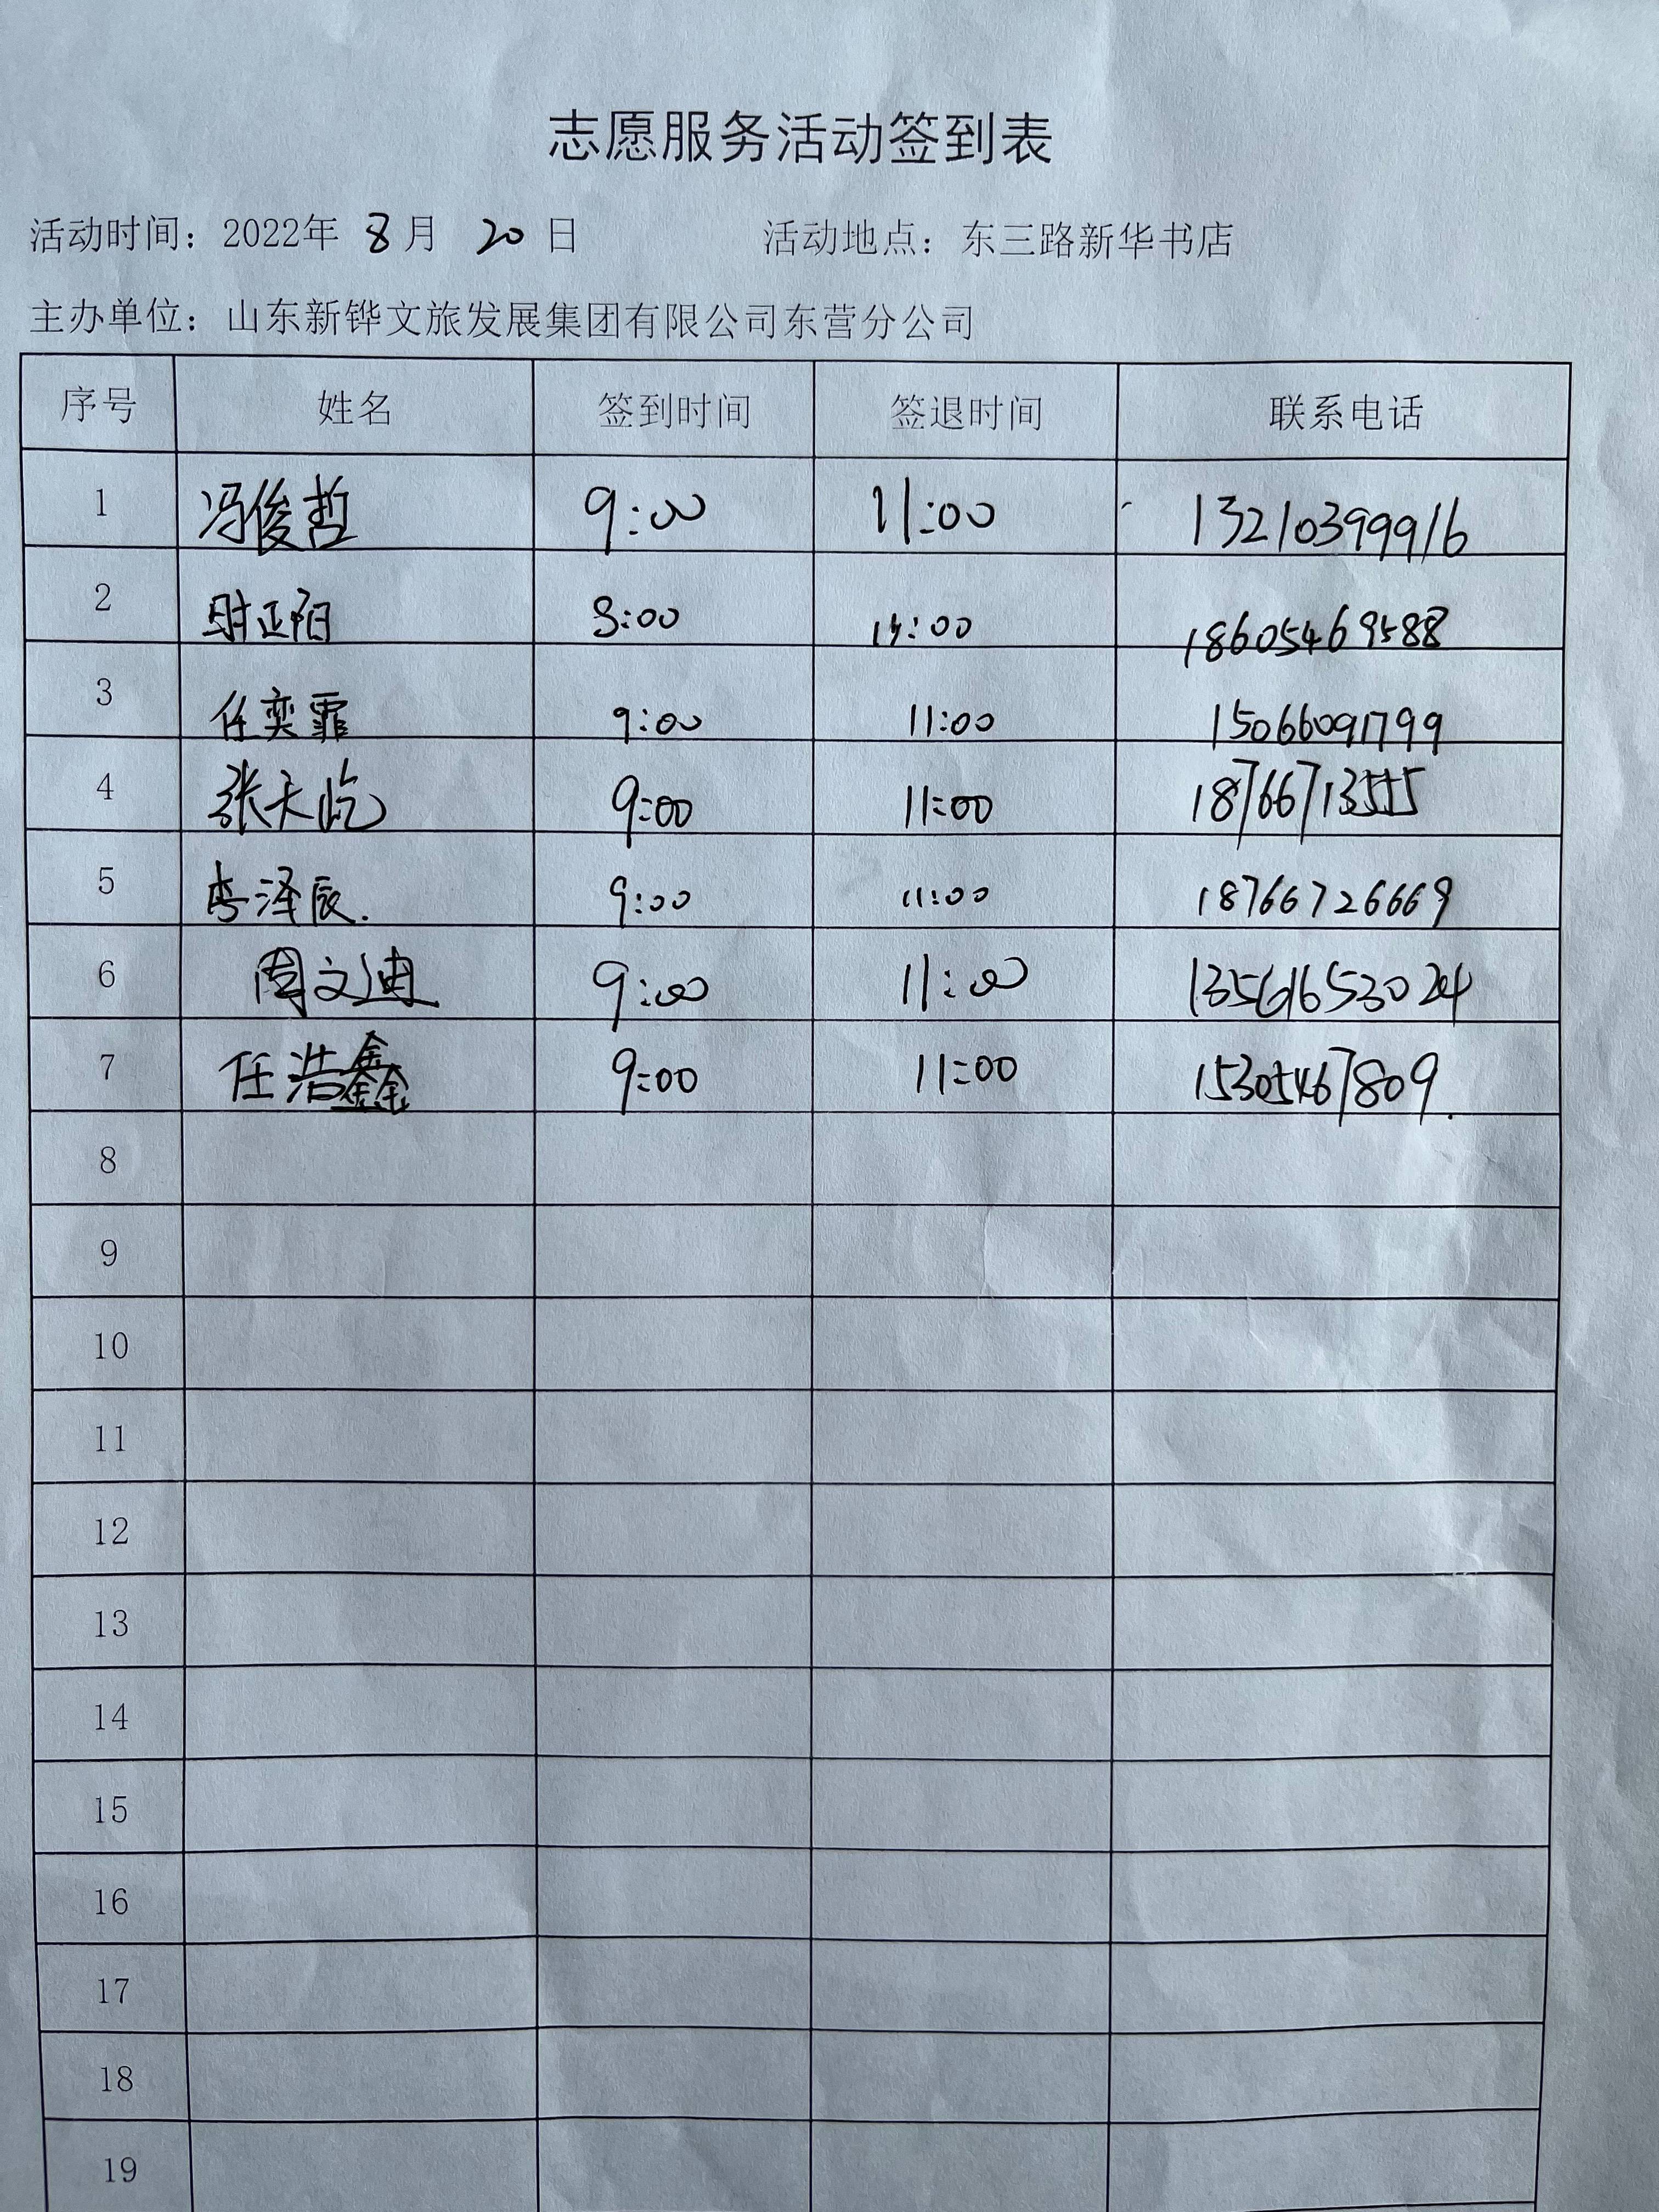 志愿服务活动签到表
活动时间：2022年 8月 20日 活动地点：东三路新华书店
主办单位：山东新铧文旅发展集团有限公司东营分公司
序号 姓名 签到时间 签退时间 联系电话
1 冯俊哲 9:00 11:00 13210399916
2 正阳 :00 :00 18605469588
3 任奕霏 9:00 11:00 15066091799
4 张天屹 9:00 11:00 18766713555
5 李泽辰. 9:00 11:00 18766726669
6 周文迪 9:00 11:00 13561653024
7 任浩鑫 9:00 11:00 15305467809.
8
9
10
11
12
13
14
15
16
17
18
19